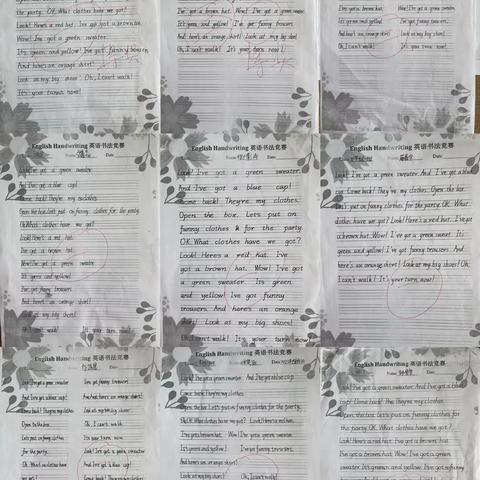 the party. OK. What clothes have we got?
Look! Here's a red hat. I've got a brown hat.
Wow! I've got a green sweater.
It's green and yellow! I've got funny trousers.
And here's an orange shirt!
Look at my big shoes! Oh, I can't walk!
It's your turn now!
I've got a brown hat. Wow! I've got a green sweater.
It's green and yellow! I've got funny trousers.
And here's an orange shirt! Look at my big shoes!
Oh, I can't walk! It's your turn now!
I've got a brown hat. Wow! I've got a green sweater.
It's green and yellow! I've got funny trousers.
And here's an orange shirt! Look at my big shoes!
Oh, I can't walk! It's your turn now.
English Handwriting 英语书法竞赛
Name Date
Look! I've got a green sweater.
And I've got a blue cap!
Come back! They're my clothes.
Open the box. Let's put on funny clothes for the party.
OK. What clothes have we got?
Look! Here's a red hat.
I've got a brown hat.
Wow! I've got a green sweater.
It's green and yellow!
I've got funny trousers.
And here's an orange shirt!
Look at my big shoes!
Oh, I can't walk! It's your turn now!
English Handwriting 英语书法竞赛
Name Date
Look! I've got a green sweater.
And I've got a blue cap!
Come back! They're my clothes.
Open the box. Let's put on
funny clothes for the party.
OK. What clothes have we got?
Look! Here's a red hat. I've
got a brown hat. Wow! I've got
a green sweater. It's green
and yellow! I've got funny
trousers. And here's an orange
shirt! Look at my big shoes!
Oh, I can't walk! It's your turn now
English Handwriting 英语书法竞赛
Name Date
Look! I've got a green sweater. And I've got a blue
cap! Come back! They're my clothes. Open the box.
Let's put on funny clothes for the party. OK. What
clothes have we got? Look! Here's a red hat. I've got
a brown hat. Wow! I've got a green sweater. It's
green and yellow! I've got funny trousers. And
here's an orange shirt! Look at my big shoes! Oh,
I can't walk! It's your turn now!
English Handwriting 英语书法竞赛
Name Date
Look! I've got a green sweater
And I've got a blue cap!
Come back! They're my clothes
Open the box.
Let's put on funny clothes
for the party.
OK. What clothes have
we got?
I've got funny trousers.
And here's an orange shirt!
Look at my big shoes!
Oh, I can't walk
It's your turn now
Look! I've got a green sweater
And I've got a blue cap!
Come back! They're my clothes
English Handwriting 英语书法竞赛
Name Date
Look! I've got a green sweater. And I've got a blue cap.
Come back! They're my clothes.
Open the box. Let's put on funny clothes for the party.
OK. What clothes have we got? Look! Here's a red hat.
I've got a brown hat. Wow! I've got a green sweater.
It's green and yellow! I've got funny trousers.
And here's an orange shirt!
Look at my big shoes! Oh, I can't walk!
It's your turn now!
English Handwriting 英语书法竞赛
Name Date
Look! I've got a green sweater. And I've got a blue
cap! Come back! They're my clothes. Open the
box. Let's put on funny clothes for
the party. OK. What clothes have we got?
Look! Here's a red hat. I've got a brown hat.
Wow! I've got a green sweater. It's
green and yellow! I've got funny
trousers. And here's an orange shirt!
Look at my big shoes! Oh, I can't
walk! It's your turn now!